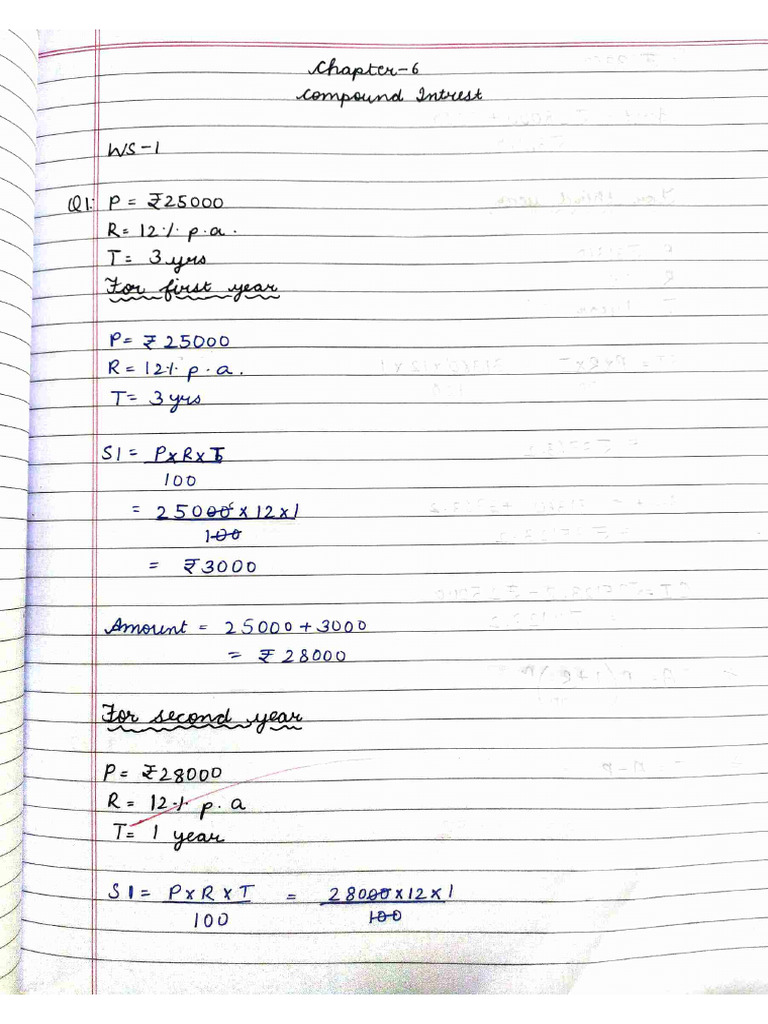 Chapter-6
Compound Intrest
WS-1
Q1: P = ₹25000
R = 12% p.a.
T = 3 yrs
For first year
P = ₹25000
R = 12% p.a.
T = 3 yrs
SI = P×R×T
100
= 25000×12×1
100
= ₹3000
Amount = 25000+3000
= ₹28000
For second year
P = ₹28000
R = 12% p.a
T = 1 year
SI = P×R×T = 28000×12×1
100 100